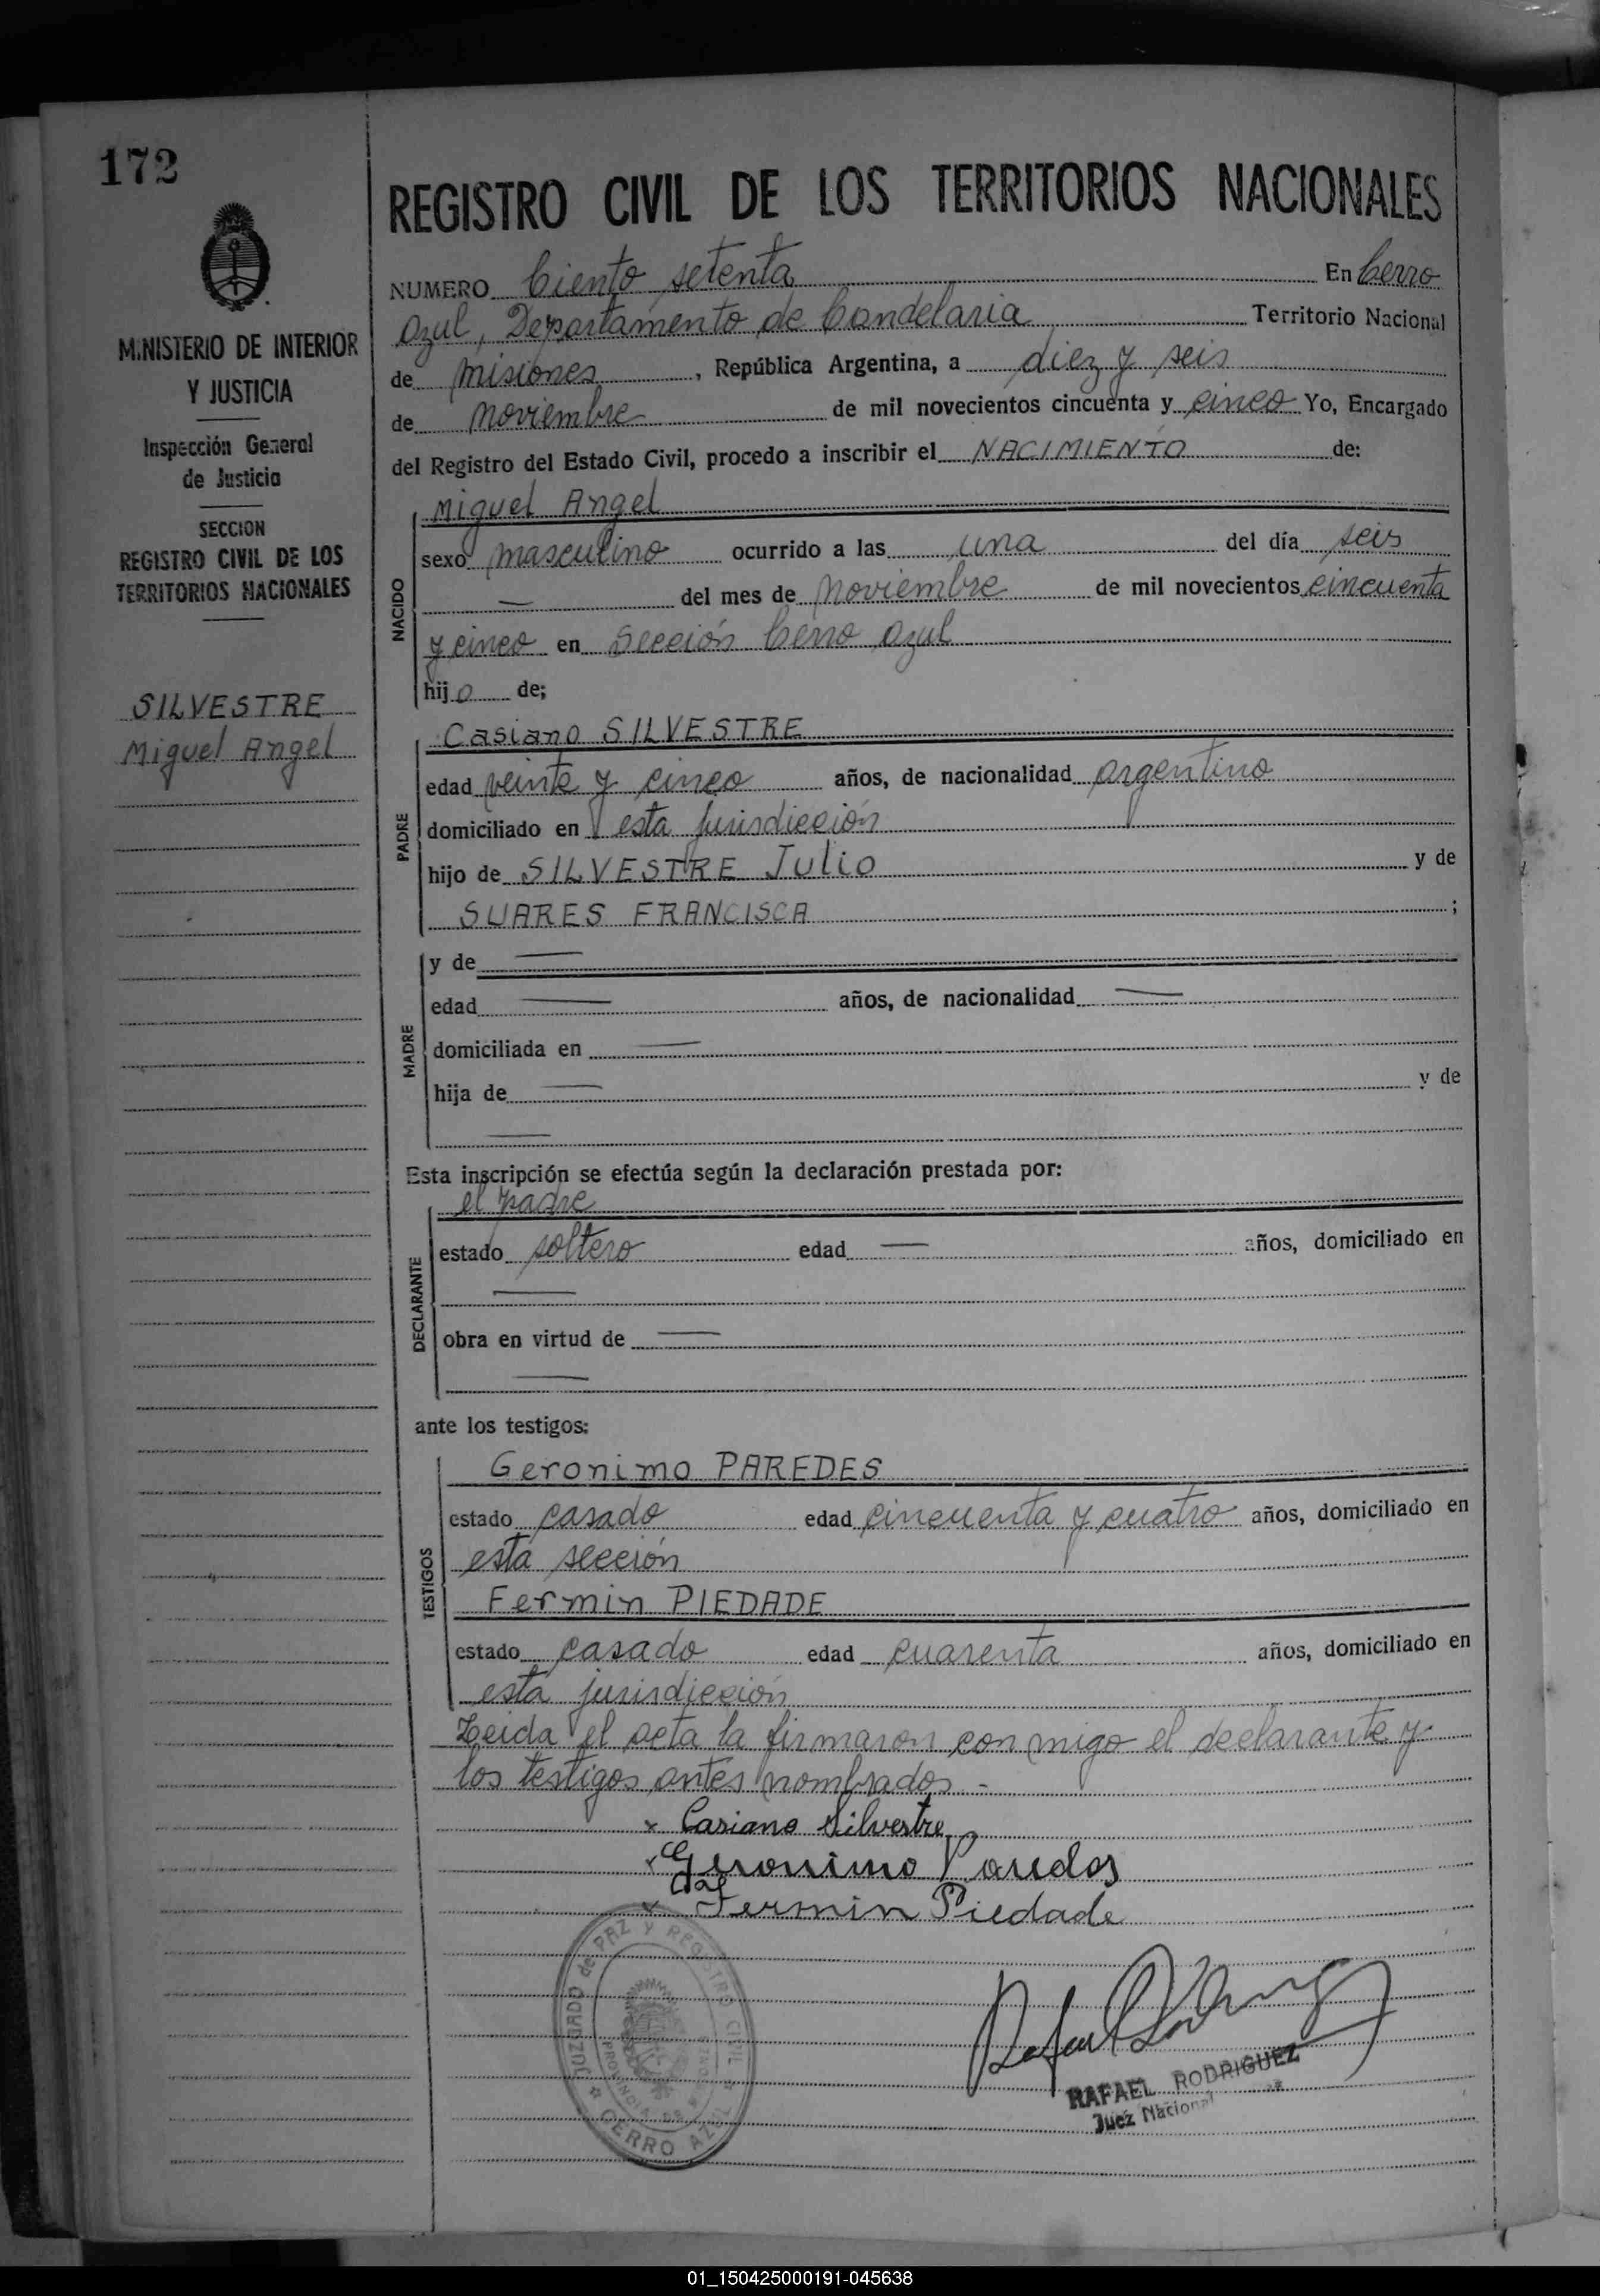 172
REGISTRO CIVIL DE LOS TERRITORIOS NACIONALES
MINISTERIO DE INTERIOR
Y JUSTICIA
Inspección General
de Justicia
SECCION
REGISTRO CIVIL DE LOS
TERRITORIOS NACIONALES
SILVESTRE
Miguel Angel
NUMERO Ciento setenta En Cerro
Azul, Departamento de Candelaria Territorio Nacional
de Misiones, República Argentina, a diez y seis
de noviembre de mil novecientos cincuenta y cinco Yo, Encargado
del Registro del Estado Civil, procedo a inscribir el NACIMIENTO de:
NACIDO
Miguel Angel
sexo masculino ocurrido a las una del día seis
— del mes de noviembre de mil novecientos cincuenta
y cinco en Sección Cerro Azul
hijo de;
PADRE
Casiano SILVESTRE
edad veinte y cinco años, de nacionalidad argentino
domiciliado en esta jurisdicción
hijo de SILVESTRE Julio y de
SUARES FRANCISCA ;
MADRE
y de —
edad — años, de nacionalidad —
domiciliada en —
hija de — y de
—
Esta inscripción se efectúa según la declaración prestada por:
DECLARANTE
el padre
estado soltero edad — años, domiciliado en
—
obra en virtud de —
—
ante los testigos:
TESTIGOS
Geronimo PAREDES
estado casado edad cincuenta y cuatro años, domiciliado en
esta sección
Fermin PIEDADE
estado casado edad cuarenta años, domiciliado en
esta jurisdicción
Leida el acta la firmaron con migo el declarante y
los testigos antes nombrados -
x Casiano Silvestre
x Geronimo Paredes
x Fermin Piedade
JUZGADO de PAZ y REGISTRO CIVIL
PROVINCIA DE MISIONES
CERRO AZUL
RAFAEL RODRIGUEZ
Juez Nacional
01_150425000191-045638